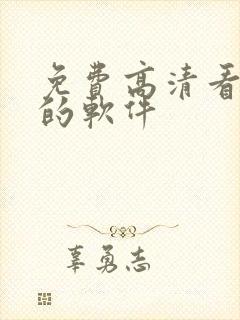 免費高清看
的軟件
辜勇志